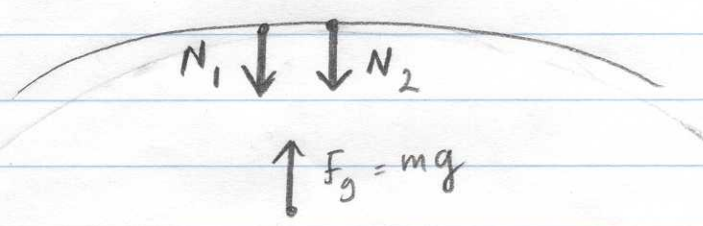 N₁ N₂
F_g = mg